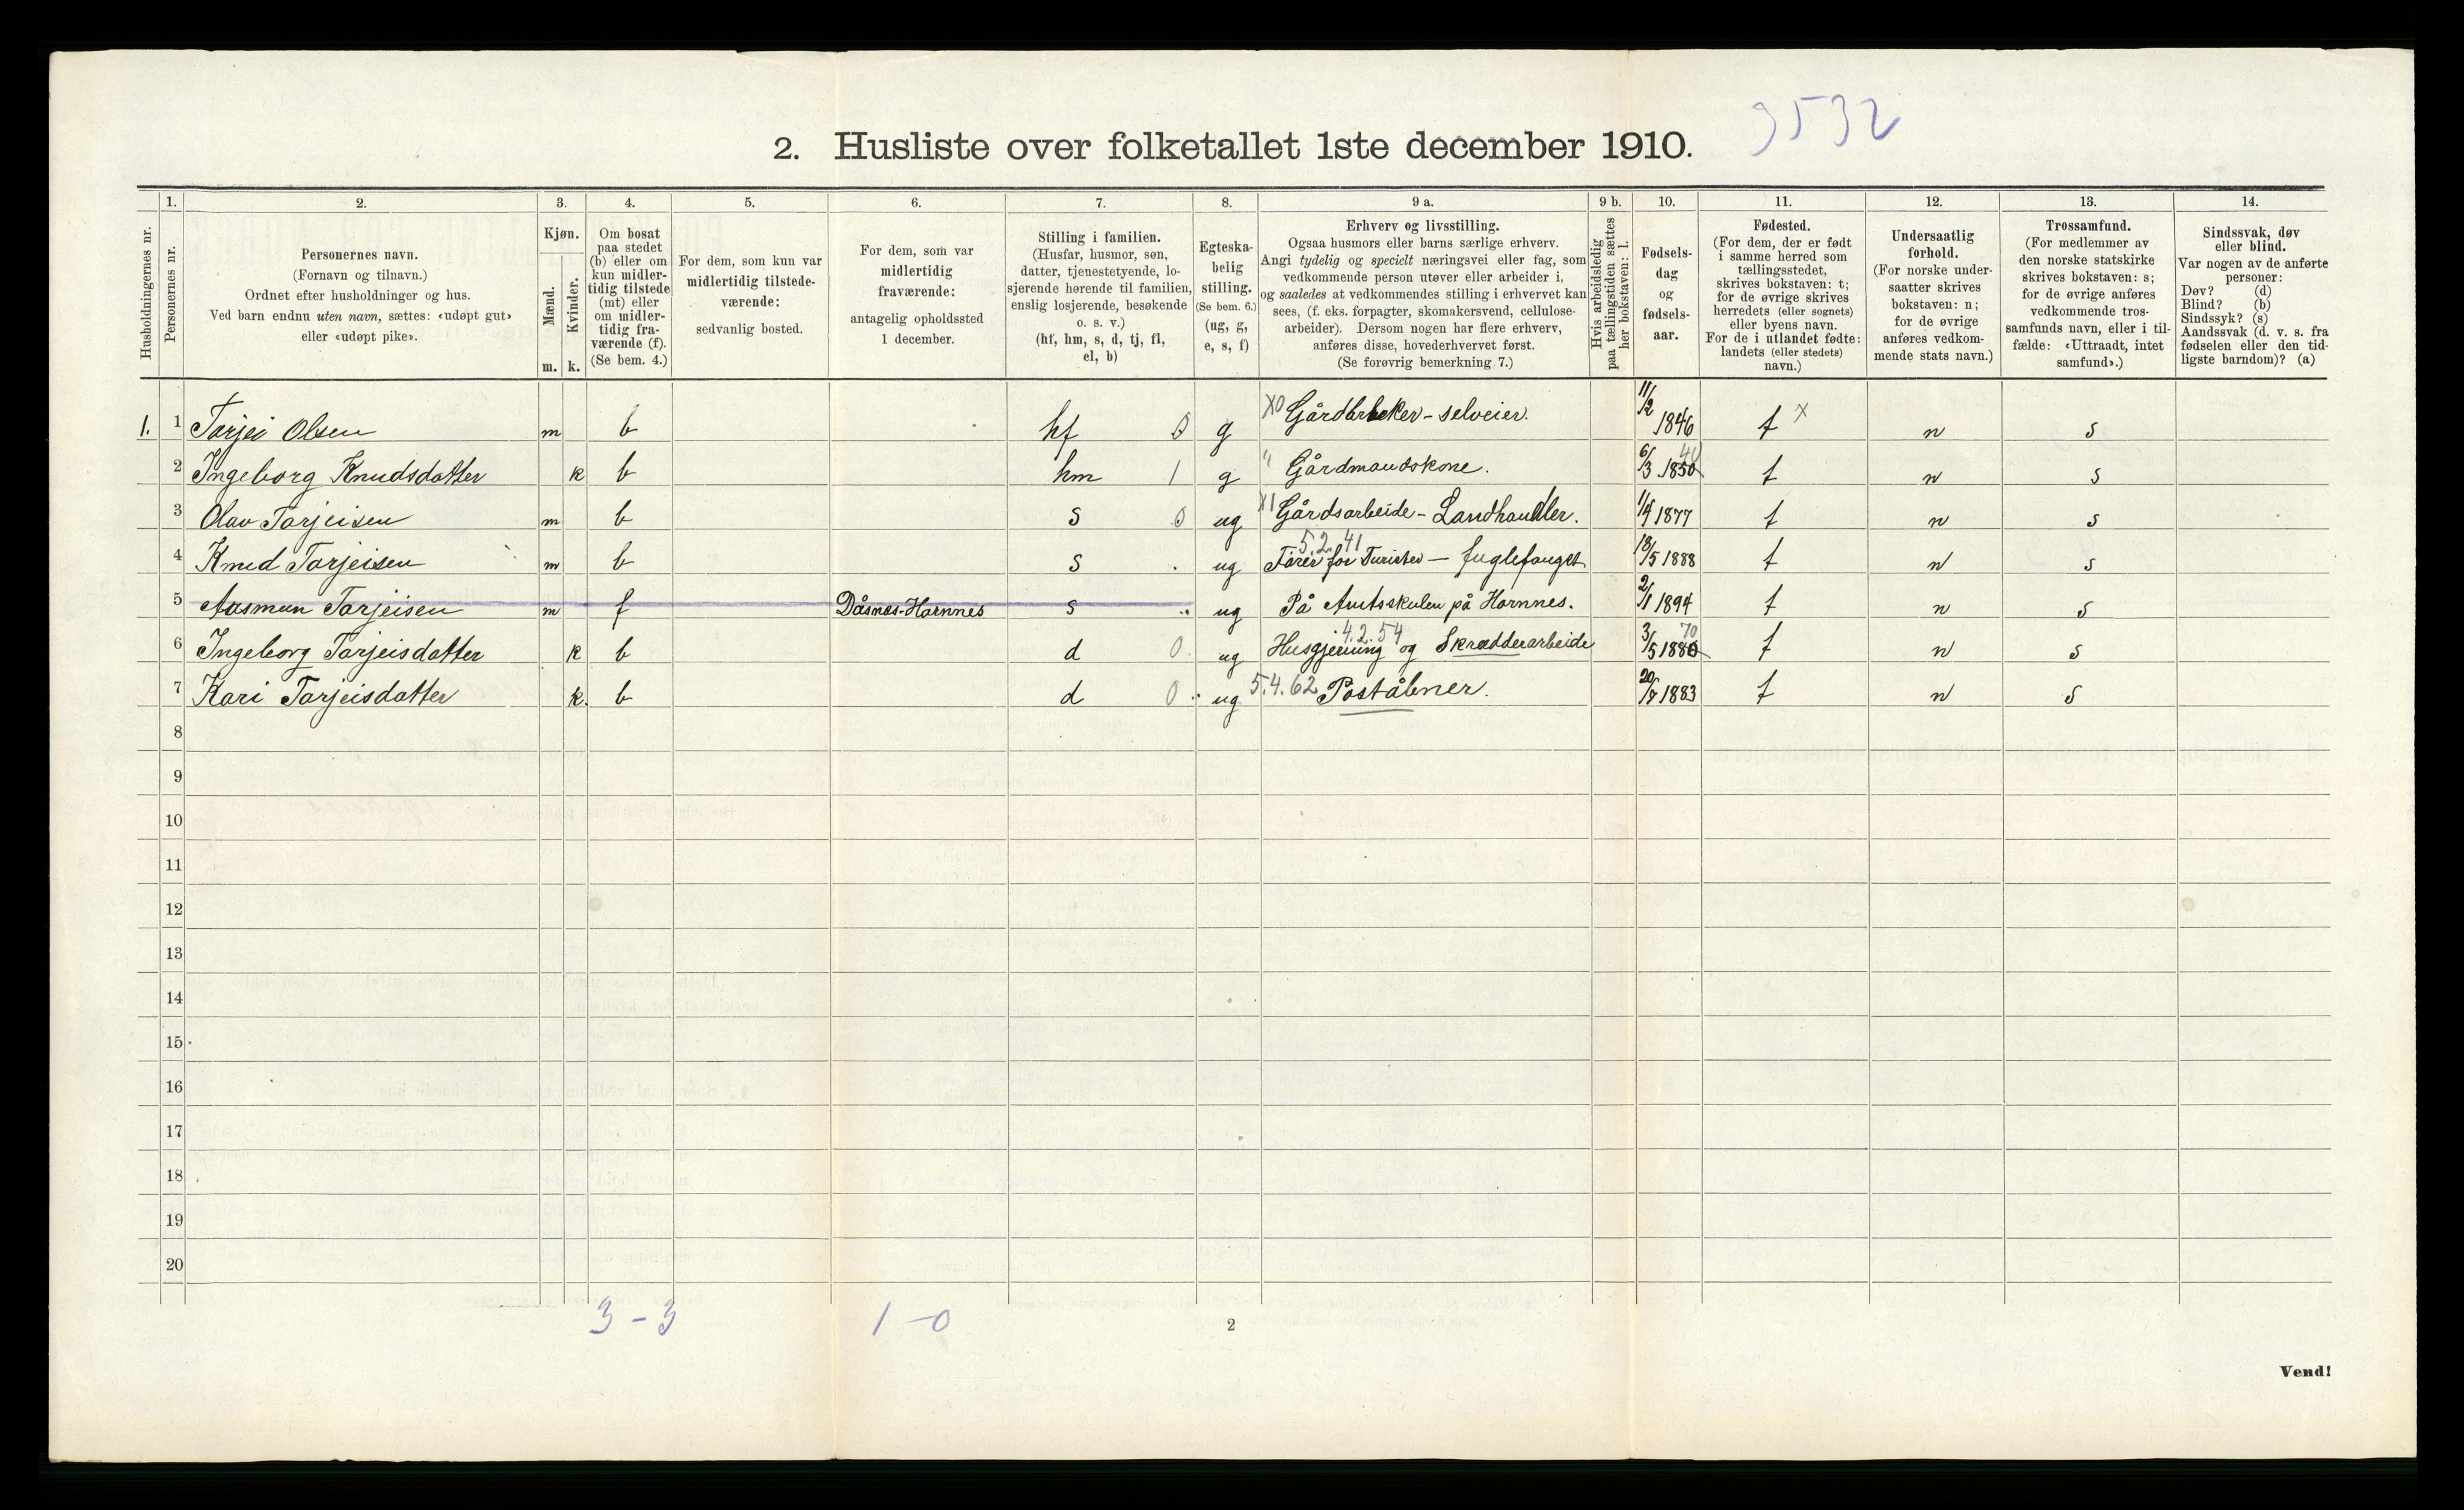 3532
2. Husliste over folketallet 1ste december 1910.
Husholdningernes nr.
1.
Personernes nr.
2.
Personernes navn.
(Fornavn og tilnavn.)
Ordnet efter husholdninger og hus.
Ved barn endnu uten navn, sættes: «udøpt gut»
eller «udøpt pike».
3.
Kjøn.
Mænd.
Kvinder.
m. k.
4.
Om bosat
paa stedet
(b) eller om
kun midler-
tidig tilstede
(mt) eller
om midler-
tidig fra-
værende (f).
(Se bem. 4.)
5.
For dem, som kun var
midlertidig tilstede-
værende:
sedvanlig bosted.
6.
For dem, som var
midlertidig
fraværende:
antagelig opholdssted
1 december.
7.
Stilling i familien.
(Husfar, husmor, søn,
datter, tjenestetyende, lo-
sjerende hørende til familien,
enslig losjerende, besøkende
o. s. v.)
(hf, hm, s, d, tj, fl,
el, b)
8.
Egteska-
belig
stilling.
(Se bem. 6.)
(ug, g,
e, s, f)
9 a.
Erhverv og livsstilling.
Ogsaa husmors eller barns særlige erhverv.
Angi tydelig og specielt næringsvei eller fag, som
vedkommende person utøver eller arbeider i,
og saaledes at vedkommendes stilling i erhvervet kan
sees, (f. eks. forpagter, skomakersvend, cellulose-
arbeider). Dersom nogen har flere erhverv,
anføres disse, hovederhvervet først.
(Se forøvrig bemerkning 7.)
9 b.
Hvis arbeidsledig
paa tællingstiden sættes
her bokstaven: l.
10.
Fødsels-
dag
og
fødsels-
aar.
11.
Fødested.
(For dem, der er født
i samme herred som
tællingsstedet,
skrives bokstaven: t;
for de øvrige skrives
herredets (eller sognets)
eller byens navn.
For de i utlandet fødte:
landets (eller stedets)
navn.)
12.
Undersaatlig
forhold.
(For norske under-
saatter skrives
bokstaven: n;
for de øvrige
anføres vedkom-
mende stats navn.)
13.
Trossamfund.
(For medlemmer av
den norske statskirke
skrives bokstaven: s;
for de øvrige anføres
vedkommende tros-
samfunds navn, eller i til-
fælde: «Uttraadt, intet
samfund».)
14.
Sindssvak, døv
eller blind.
Var nogen av de anførte
personer:
Døv? (d)
Blind? (b)
Sindssyk? (s)
Aandssvak (d. v. s. fra
fødselen eller den tid-
ligste barndom)? (a)
1. 1 Tarjei Olsen m b hf 0 g X0 Gårdbruker - selveier. 11/2 1846 t x n s
2 Ingeborg Knudsdatter k b hm 1 g " Gårdmandskone. 6/3 1850 40 t n s
3 Olav Tarjeisen m b s 0 ug X1 Gårdsarbeide - Landhandler. 1/4 1877 t n s
5.2.41
4 Knud Tarjeisen m b s . ug Fører for Turister - fuglefangst 18/5 1888 t n s
5 Aasmun Tarjeisen m f Dåsnes-Hornnes s .. ug På Amtsskulen på Hornnes. 2/1 1894 t n s
4.2.54
6 Ingeborg Tarjeisdatter k b d 0 ug Husgjerning og Skrædderarbeide 3/5 1880 70 t n s
7 Kari Tarjeisdatter k. b d 0 ug 5.4.62 Poståbner. 20/7 1883 t n s
8
9
10
11
12
13
14
15
16
17
18
19
20
3-3 1-0
2
Vend!